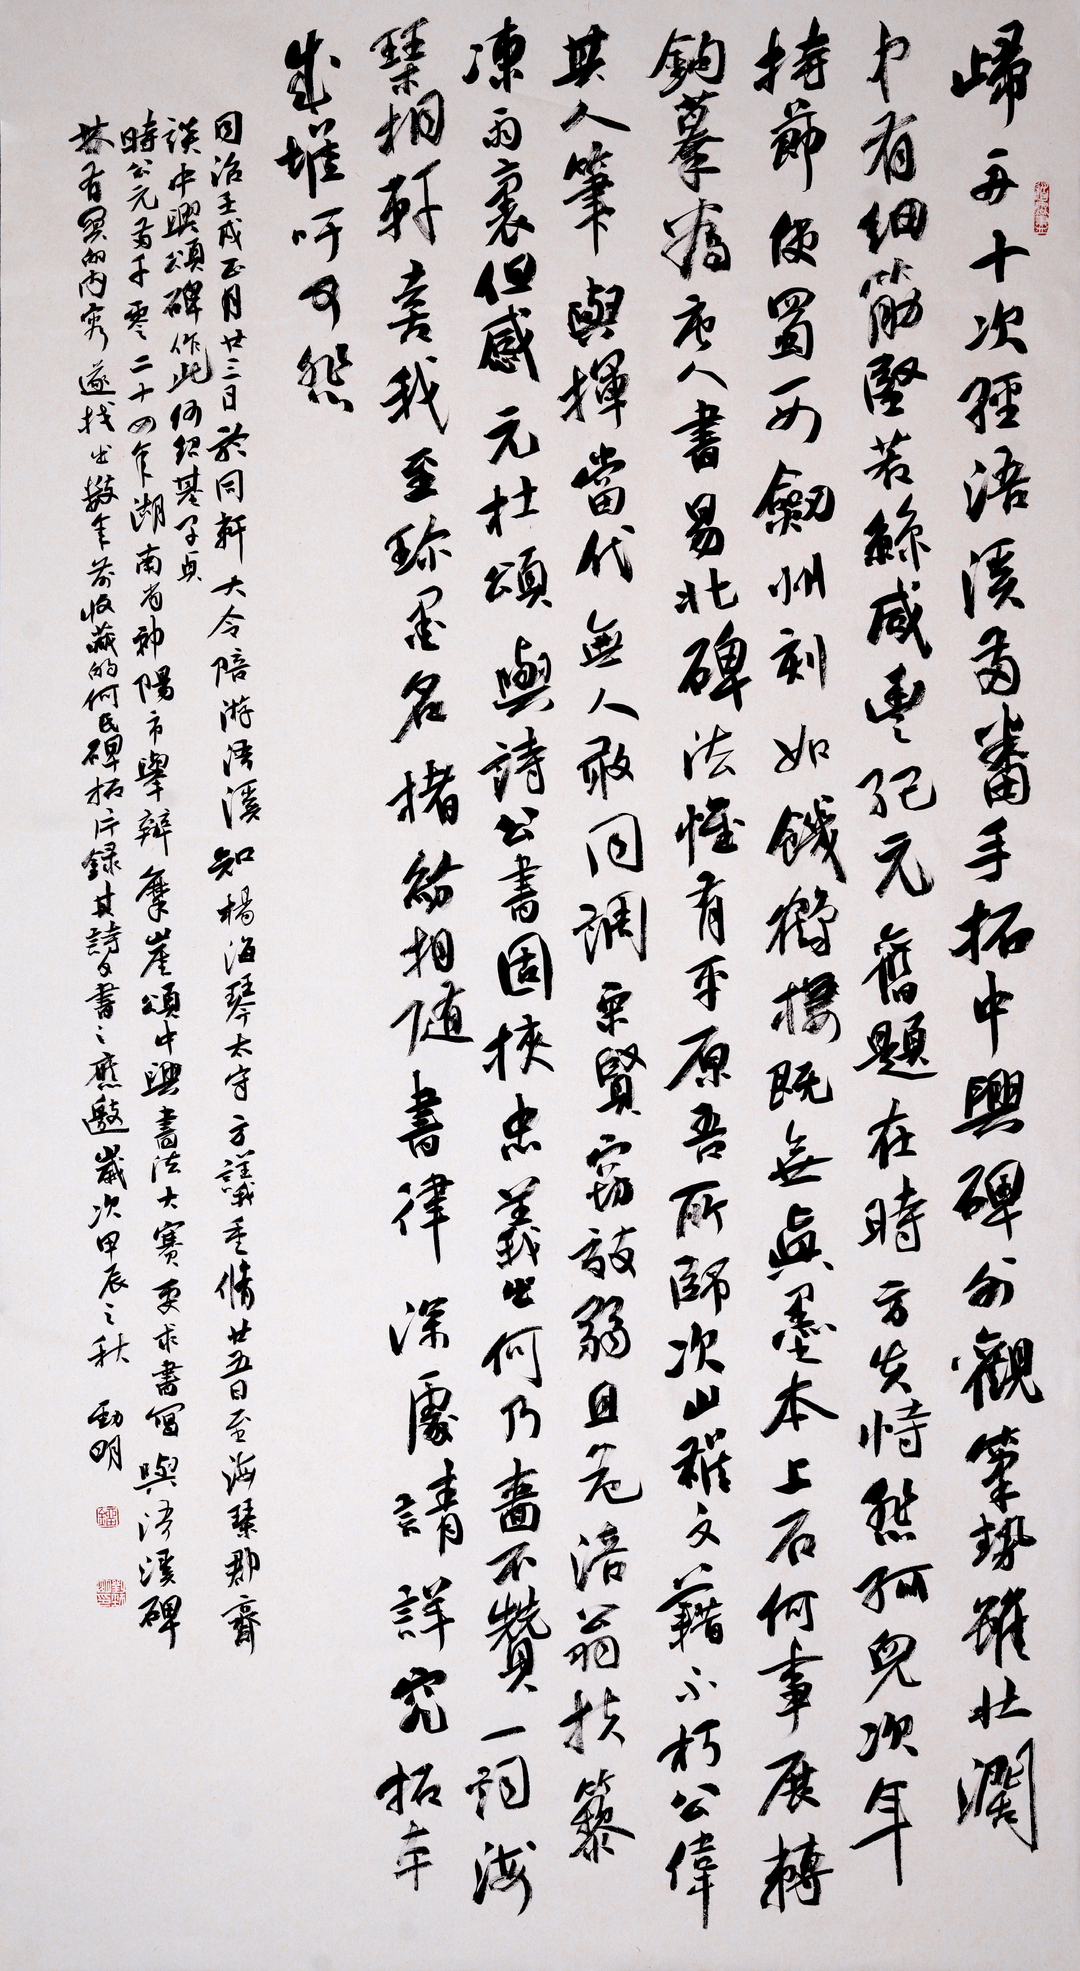 歸舟十次經浯溪兩番手拓中興碑外觀筆勢雖壯闊
中有細筋堅若絲咸豐紀元舊題在時方失恃悲孤兒次年
持節使蜀西劔州刻如饑鶴摹既無真墨本上石何事展轉
鈎摹為唐人書易北碑法惟有平原吾所師次山雄文藉不朽公偉
其人筆與揮當代無人敢同調宋賢竊效弱且危涪翁扶藜
凍雨裏但感元杜頌與詩公書固挾忠義出何乃嗇不贊一詞海
琴相軒喜我至珍墨名楮紛相隨書律深處請詳究拓本
成堆吁可怨
同治壬戌正月廿三日於同軒大令陪游浯溪知楊海琴太守方議重脩廿五日至海琴郡齋
談中興頌碑作此何紹基子貞
時公元兩千零二十四年湖南省祁陽市舉辦摩崖頌中興書法大賽要求書寫與浯溪碑
林有關的內容遂找出數年前收藏的何氏碑拓片錄其詩文書之應邀歲次甲辰之秋 勁明